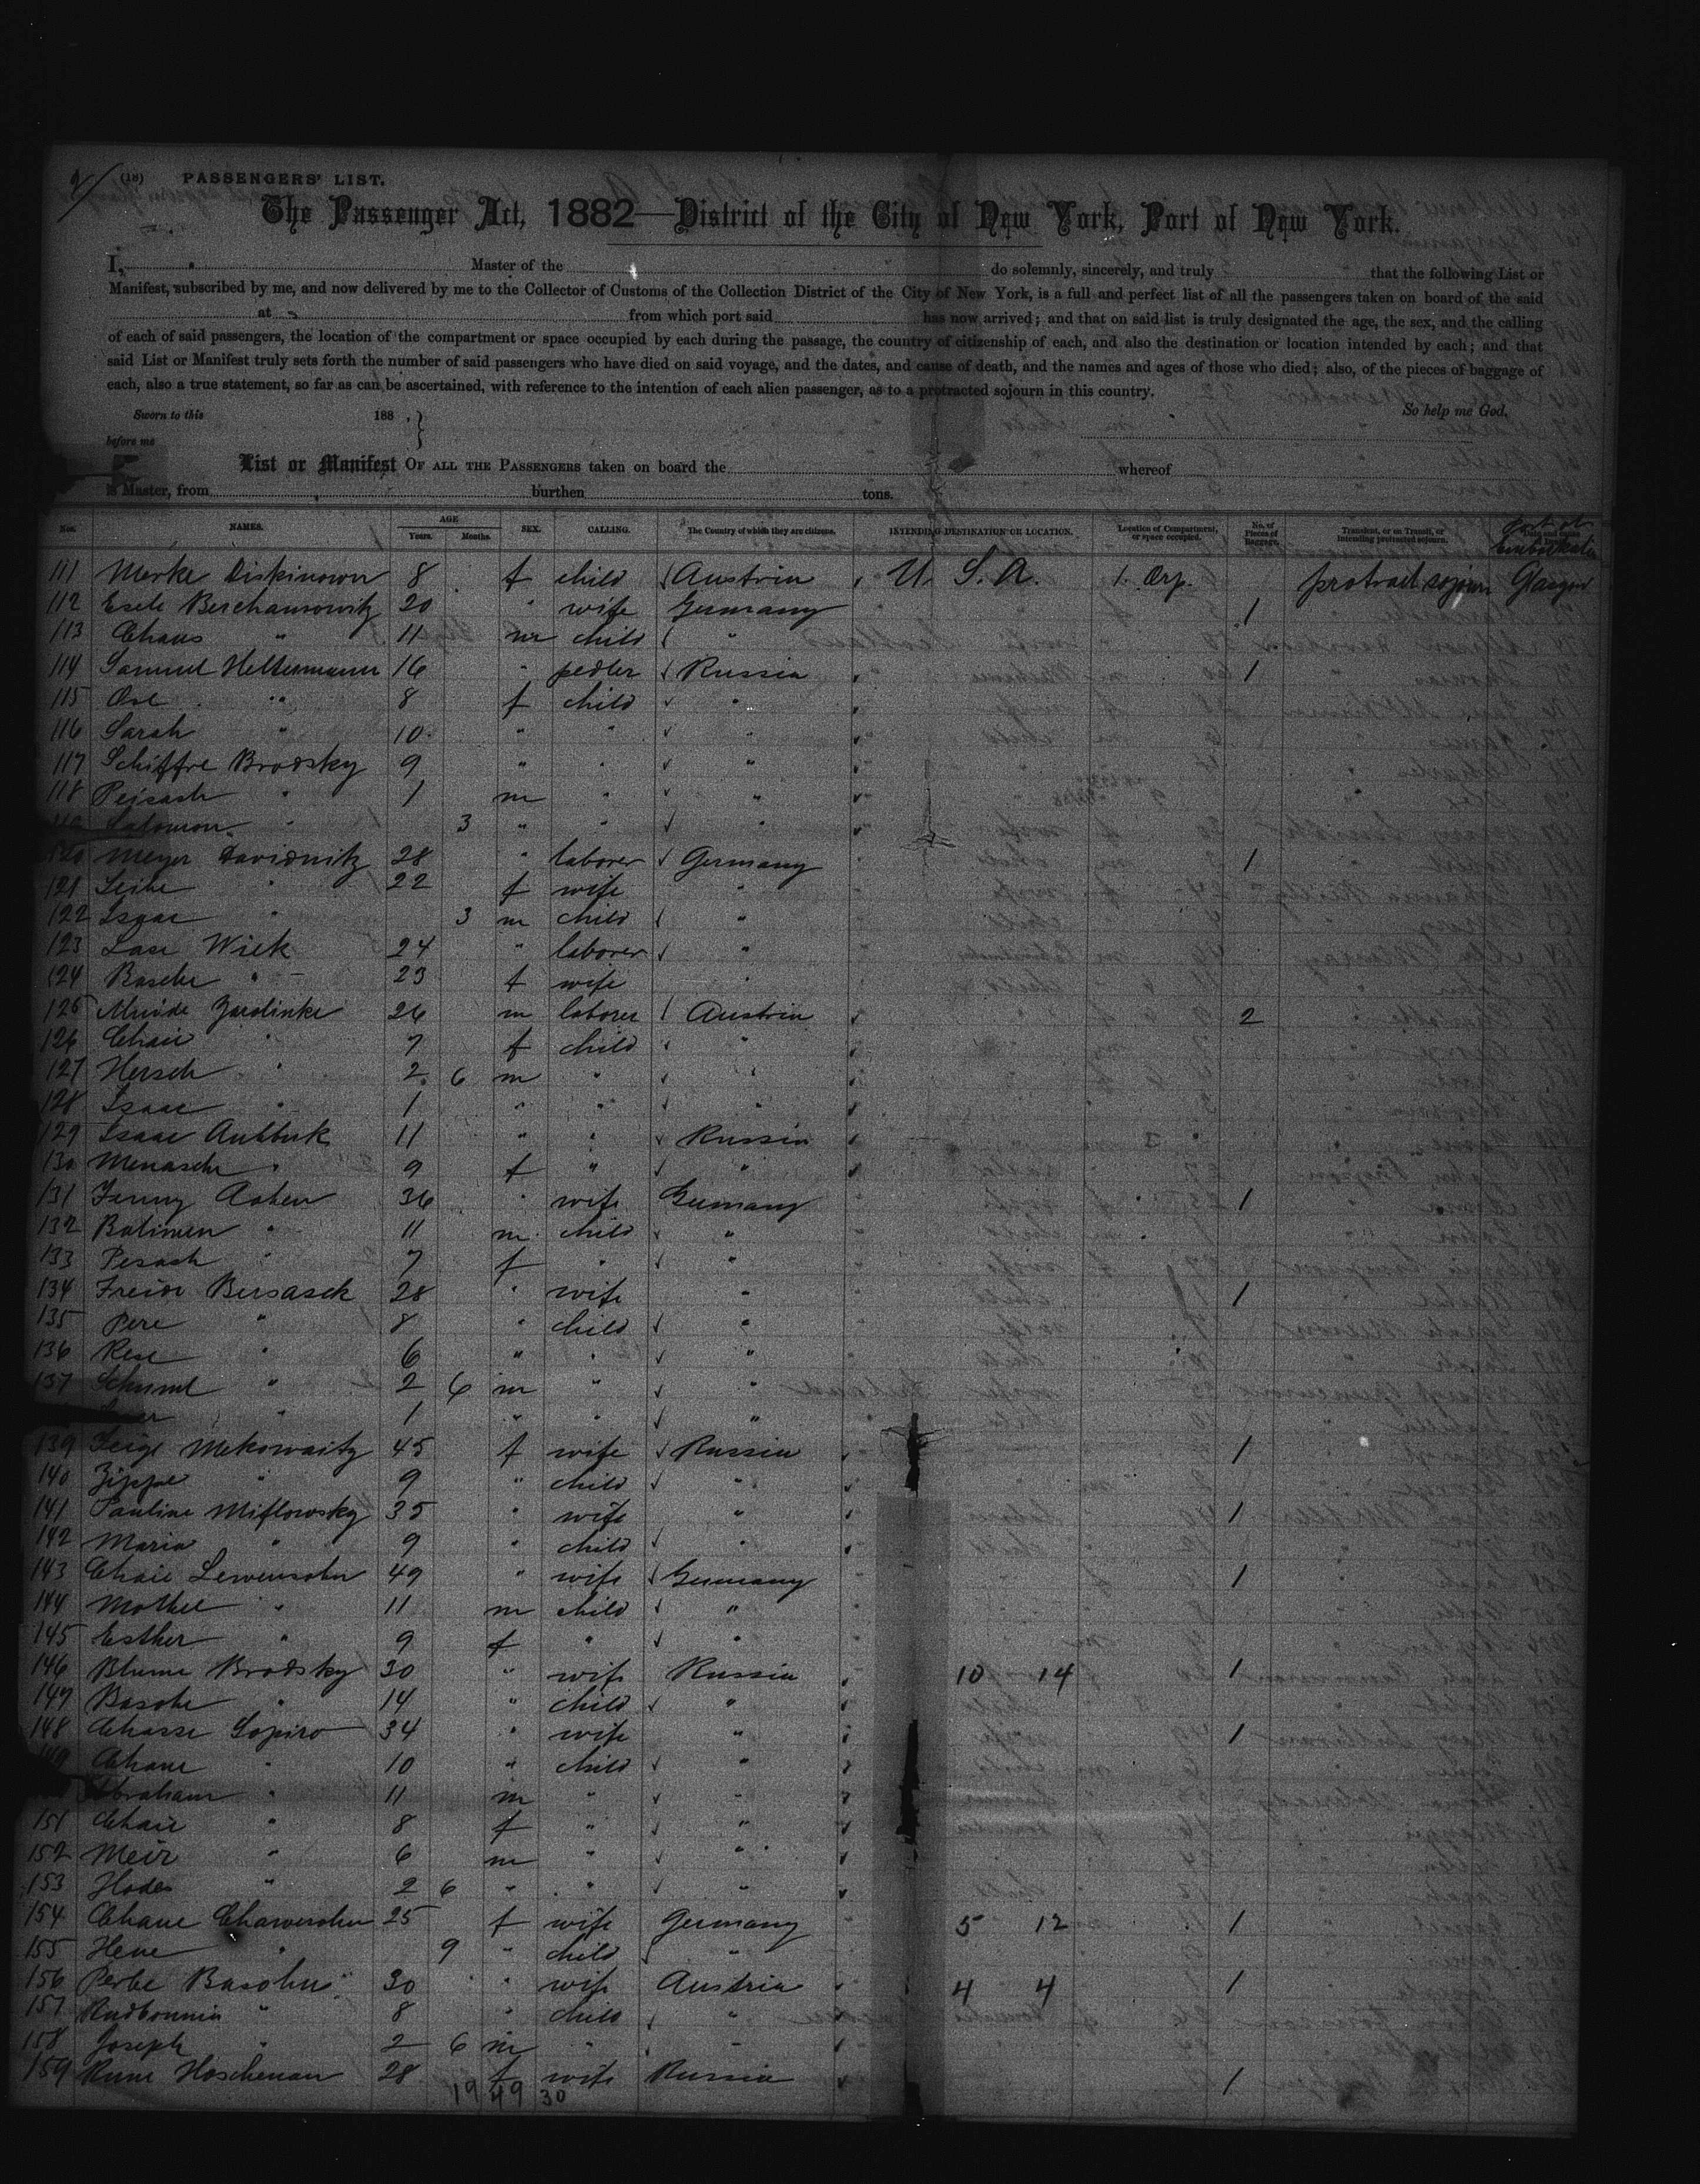 (18) PASSENGERS' LIST.
The Passenger Act, 1882—District of the City of New York, Port of New York.
I, Master of the do solemnly, sincerely, and truly that the following List or
Manifest, subscribed by me, and now delivered by me to the Collector of Customs of the Collection District of the City of New York, is a full and perfect list of all the passengers taken on board of the said
at from which port said has now arrived; and that on said list is truly designated the age, the sex, and the calling
of each of said passengers, the location of the compartment or space occupied by each during the passage, the country of citizenship of each, and also the destination or location intended by each; and that
said List or Manifest truly sets forth the number of said passengers who have died on said voyage, and the dates, and cause of death, and the names and ages of those who died; also, of the pieces of baggage of
each, also a true statement, so far as can be ascertained, with reference to the intention of each alien passenger, as to a protracted sojourn in this country.
Sworn to this 188 . So help me God.
before me
List or Manifest OF ALL THE PASSENGERS taken on board the whereof
is Master, from burthen tons.
Nos. NAMES. AGE Years. Months. SEX. CALLING. The Country of which they are citizens. INTENDING DESTINATION OR LOCATION. Location of Compartment, or space occupied. No. of Pieces of Baggage. Transient, or in Transit, or intending protracted sojourn. Port of
111 Merke Diskinown 8 f child Austria U. S. A. 1. protract sojourn Glasgow
112 Esele Berchanowitz 20 " wife Germany 1
113 Chaus " 11 m child "
114 Samuel Heltermann 16 " pedler Russia 1
115 " 8 f child "
116 Sarah " 10 " " "
117 Schiffre Brodsky 9 " " "
118 Peisach " 1 m " "
Salomon " 3 " " "
120 Meyer Davidnitz 28 " laborer Germany 1
121 Leibe " 22 f wife "
122 Isaac " 3 m child "
123 Lase Wiek 24 " laborer "
124 Basche " 23 f wife "
125 Zardinke 26 m laborer Austria 2
126 Chaie " 7 f child "
127 Hersch " 2 6 m " "
128 Isaac " 1 " " "
129 Isaac 11 " " Russia
130 Menasche " 9 f " "
131 Fanny Cohen 36 " wife Germany 1
132 " 11 m child "
133 Pesach " 7 f " "
134 Freide Bersasck 28 " wife " 1
135 Pere " 8 " child "
136 Rese " 6 " " "
137 Schuml " 2 6 m " "
" 1 " " "
139 Feige Mekowaitz 45 f wife Russia 1
140 Zippe " 9 " child "
141 Pauline Miflowsky 35 " wife " 1
142 Maria " 9 " child "
143 Chaie Lewensohn 49 " wife Germany 1
144 Mothel " 11 m child "
145 Esther " 9 f " "
146 Blume Brodsky 30 " wife Russia 10 14 1
147 Basche " 14 " child "
148 Chasse Sopiro 34 " wife " 1
Chane " 10 " child "
Abraham " 11 m " "
151 Chaie " 8 f " "
152 Meir " 6 m " "
153 Hodes " 2 6 " " "
154 Chane Charwesohn 25 f wife Germany 5 12 1
155 Hene " 9 " child "
156 Perbe Basohn 30 " wife Austria 4 4 1
157 " 8 " child "
158 Joseph " 2 6 m " "
159 Rune Hoschenan 28 f wife Russia 1
19 49 30